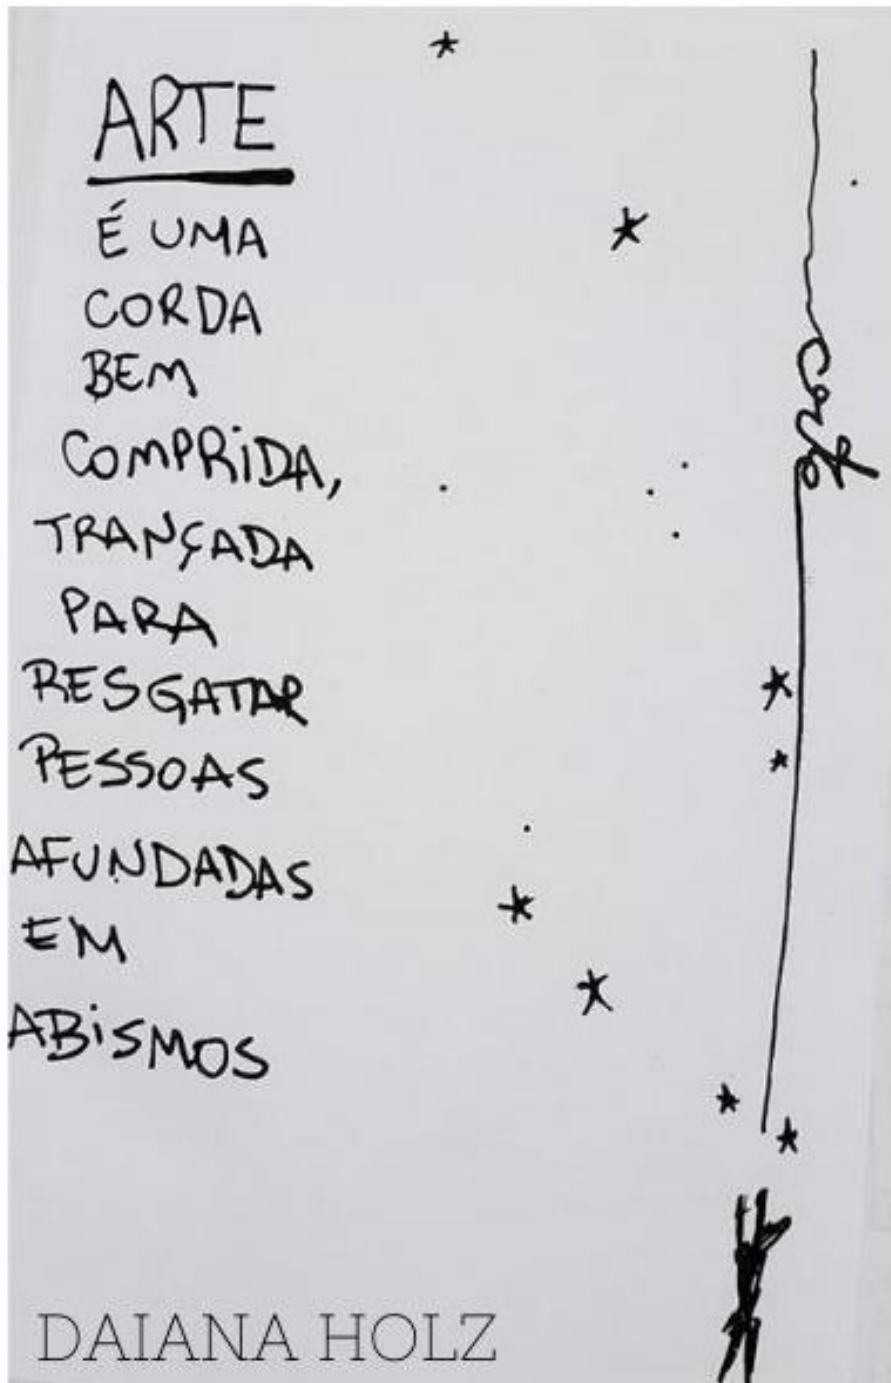 ARTE
É UMA
CORDA
BEM
COMPRIDA,
TRANÇADA
PARA
RESGATAR
PESSOAS
AFUNDADAS
EM
ABISMOS
DAIANA HOLZ